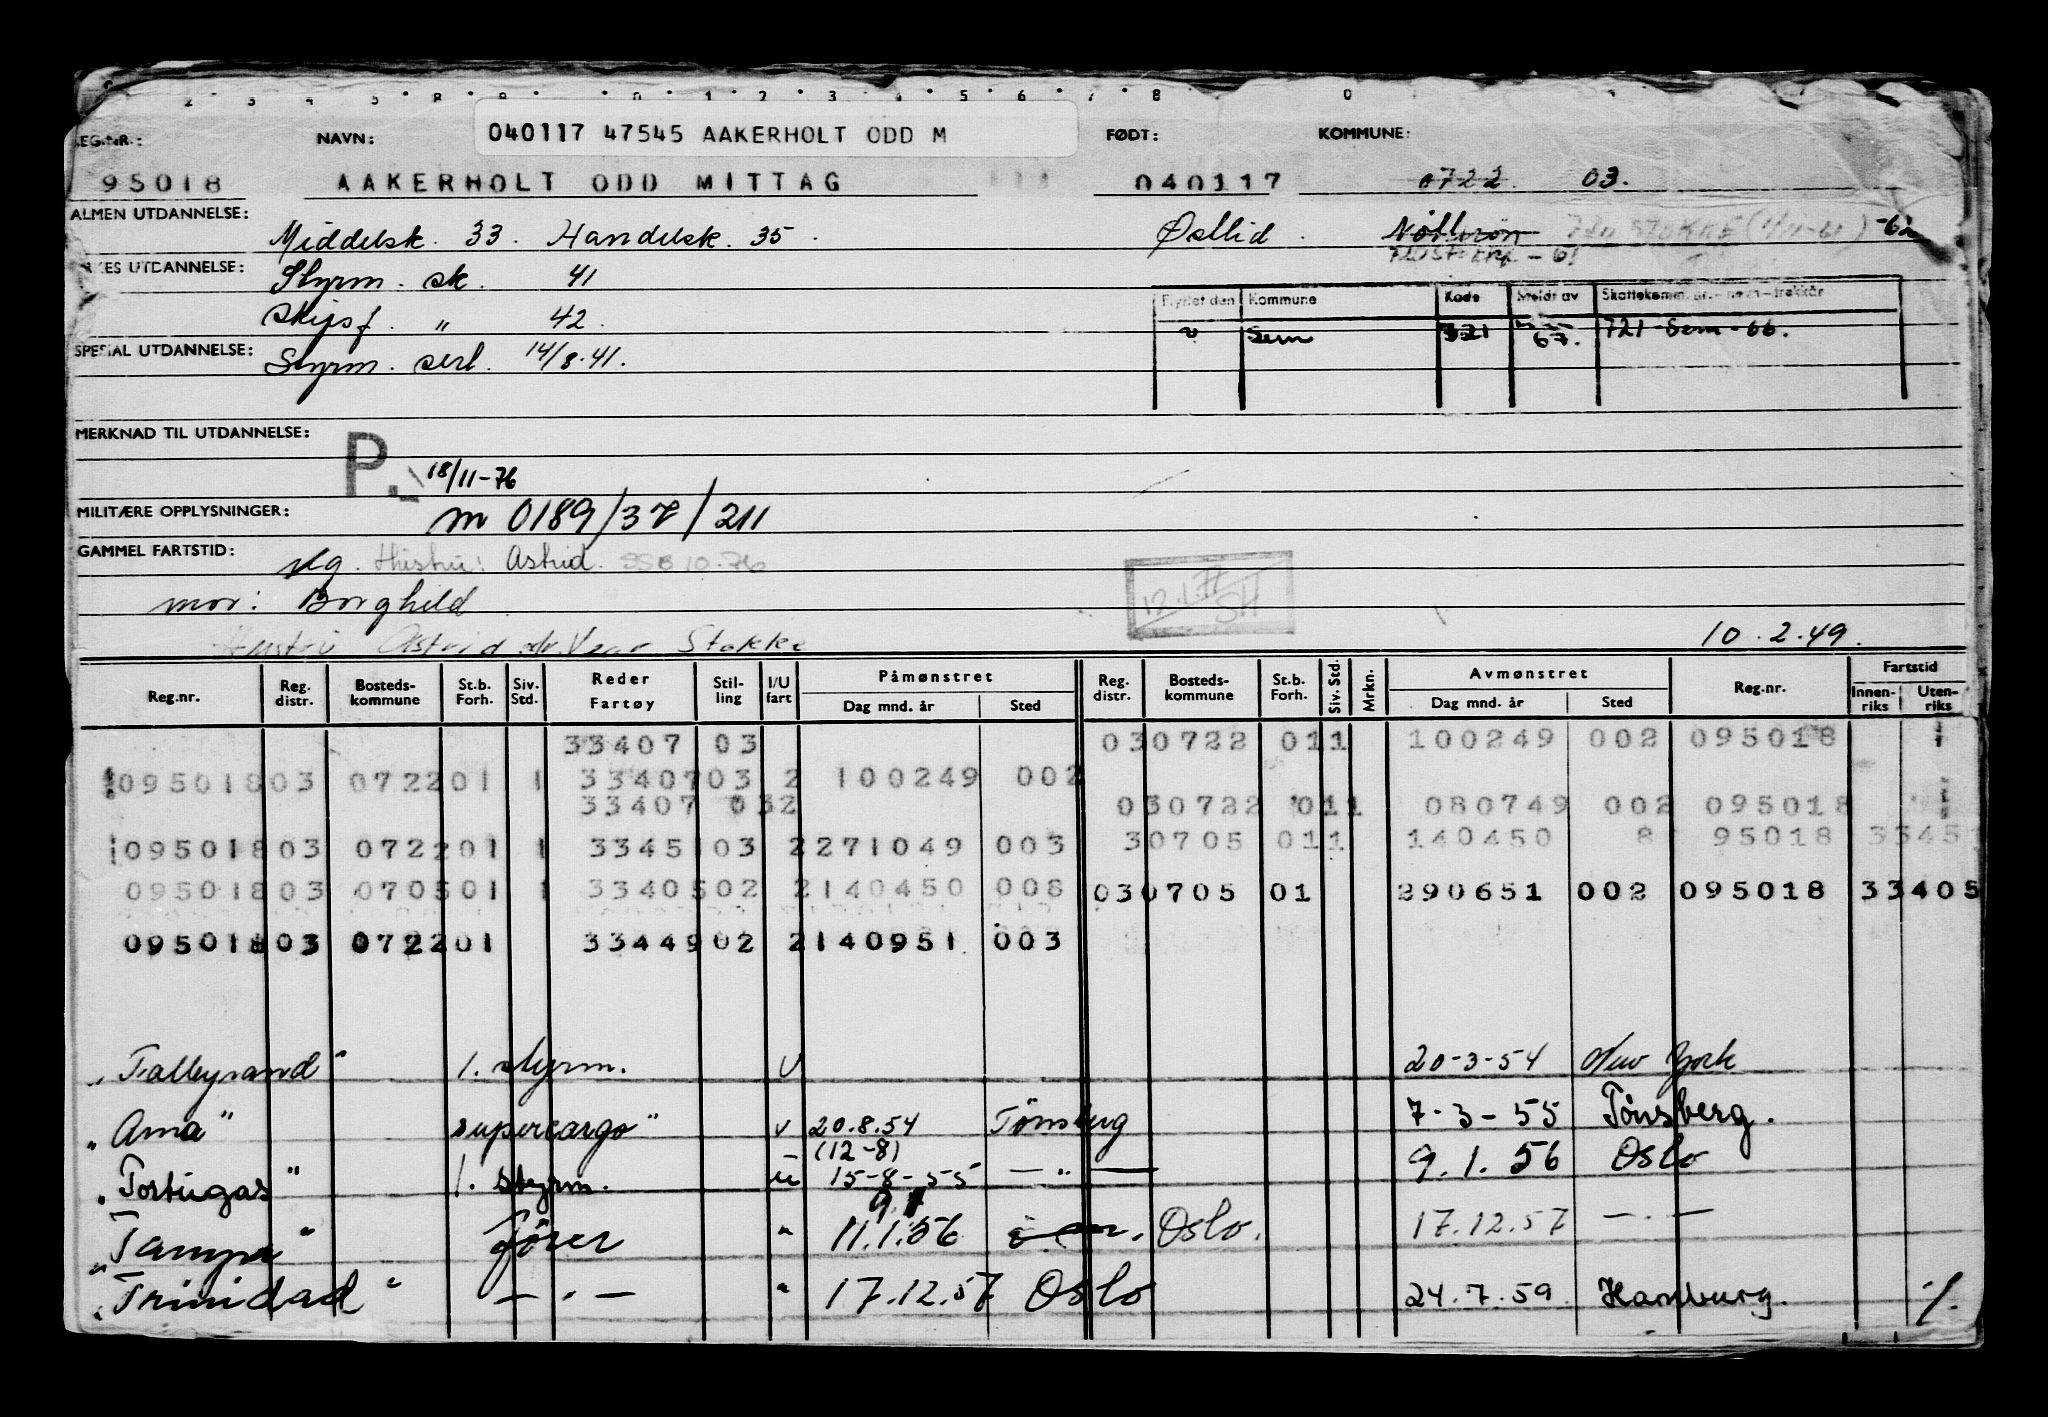 040117 47545 AAKERHOLT ODD M
NAVN: FØDT: KOMMUNE:
95018 AAKERHOLT ODD MITTAG 040117 0722 03.
ALMEN UTDANNELSE: Middelsk. 33. Handelsk. 35. Østlid. Nøtterøy
UTDANNELSE: Styrm. sk. 41
Skipsf. " 42.
SPESIAL UTDANNELSE: Styrm. sert. 14/8.41.
Flyttet den Kommune Kode Meldt av
Sem 67. 721 Sem - 66.
MERKNAD TIL UTDANNELSE:
P. 18/11-76
MILITÆRE OPPLYSNINGER: m 0189/37/211
GAMMEL FARTSTID: Hustru: Astrid. SSB 10.76
mor: Borghild
12.1.77 SH
Hustru Astrid Stokke 10.2.49.
Reg.nr. Reg. distr. Bosteds-kommune St.b. Forh. Siv. Std. Reder Fartøy Stil-ling I/U fart Påmønstret Dag mnd. år Sted Reg. distr. Bosteds-kommune St.b. Forh. Siv. Std. Mrkn. Avmønstret Dag mnd. år Sted Reg.nr. Fartstid Innen-riks Uten-riks
33407 03 030722 011 100249 002 095018
09501803 072201 1 3340703 2 100249 002
33407 032 030722 011 080749 002 095018
09501803 072201 1 3345103 2271049 003 30705 011 140450 8 95018 3345
09501803 070501 1 3340502 2140450 008 030705 01 290651 002 095018 33405
09501803 072201 3344902 2140951 003
"Talleyrand" 1. styrm. U 20-3-54 New York
"Ama" supercargo" 20.8.54 Tønsberg 7-3-55 Tønsberg.
(12-8)
"Tortugas" 1. styrm. u 15-8-55 — " — 9.1.56 Oslo
"Tampa" fører " 11.1.56 Oslo. 17.12.57 — . —
"Trinidad" — . — " 17.12.57 Oslo 24.7.59. Hamburg. ./.